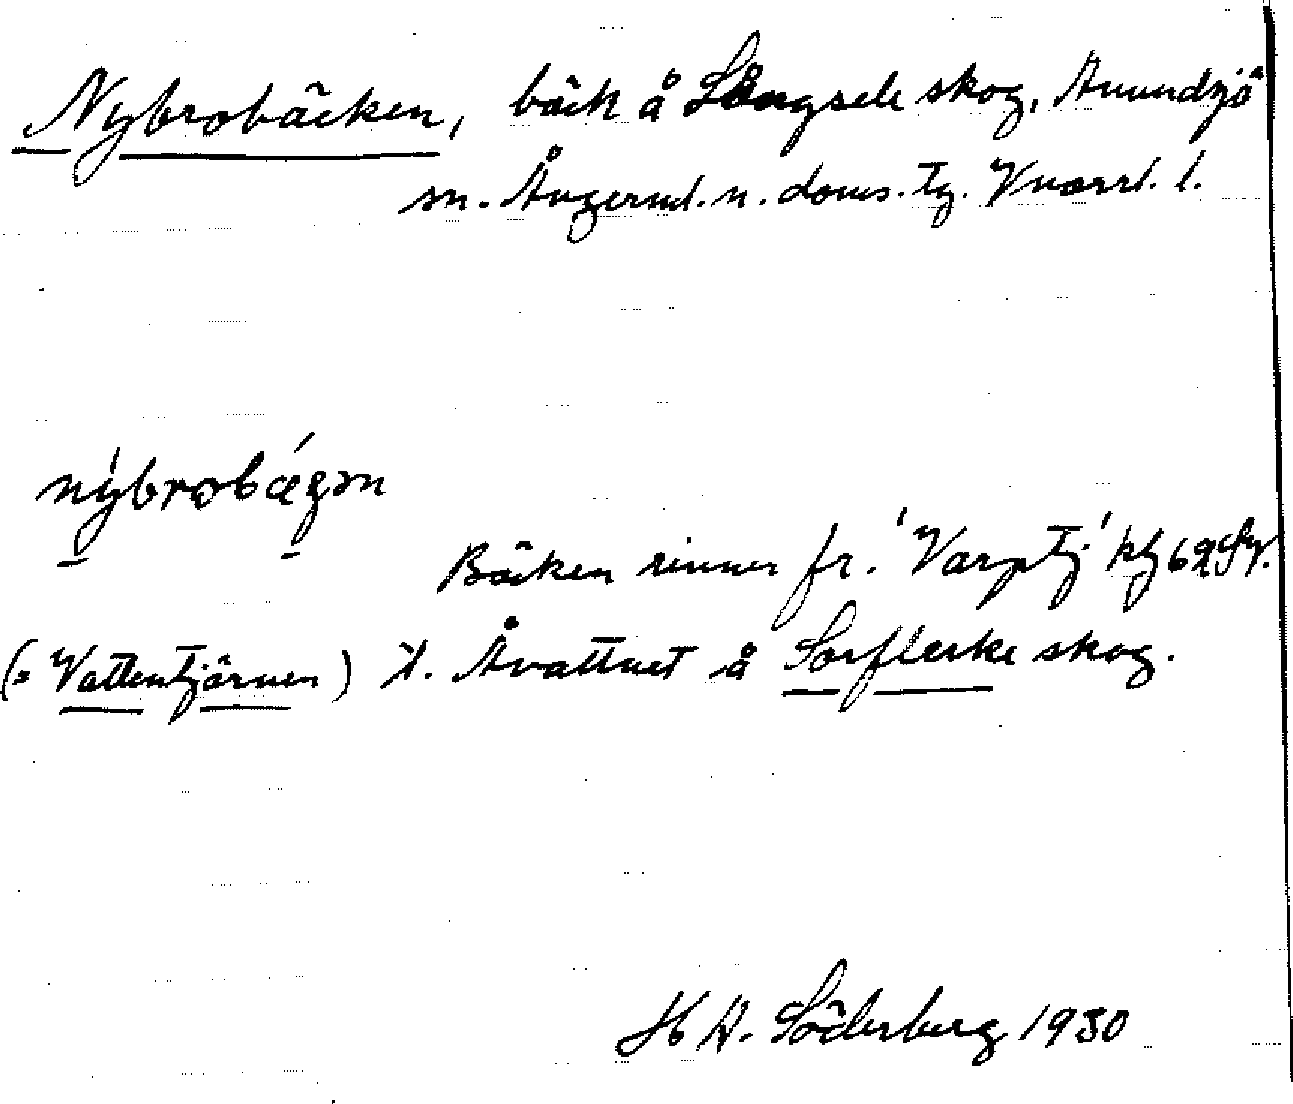 Nybrobäcken, bäck å Långsele skog, Anundsjö
sn. Ångerml. n. doms. tg. Vnorrl. l.
nýbrobǽgən
Bäcken rinner fr. 'Varptj.' kbl 62 Sv.
(= Vattentjärnen) t. Åvattnet å Sörflärke skog.
H A. Söderberg 1930